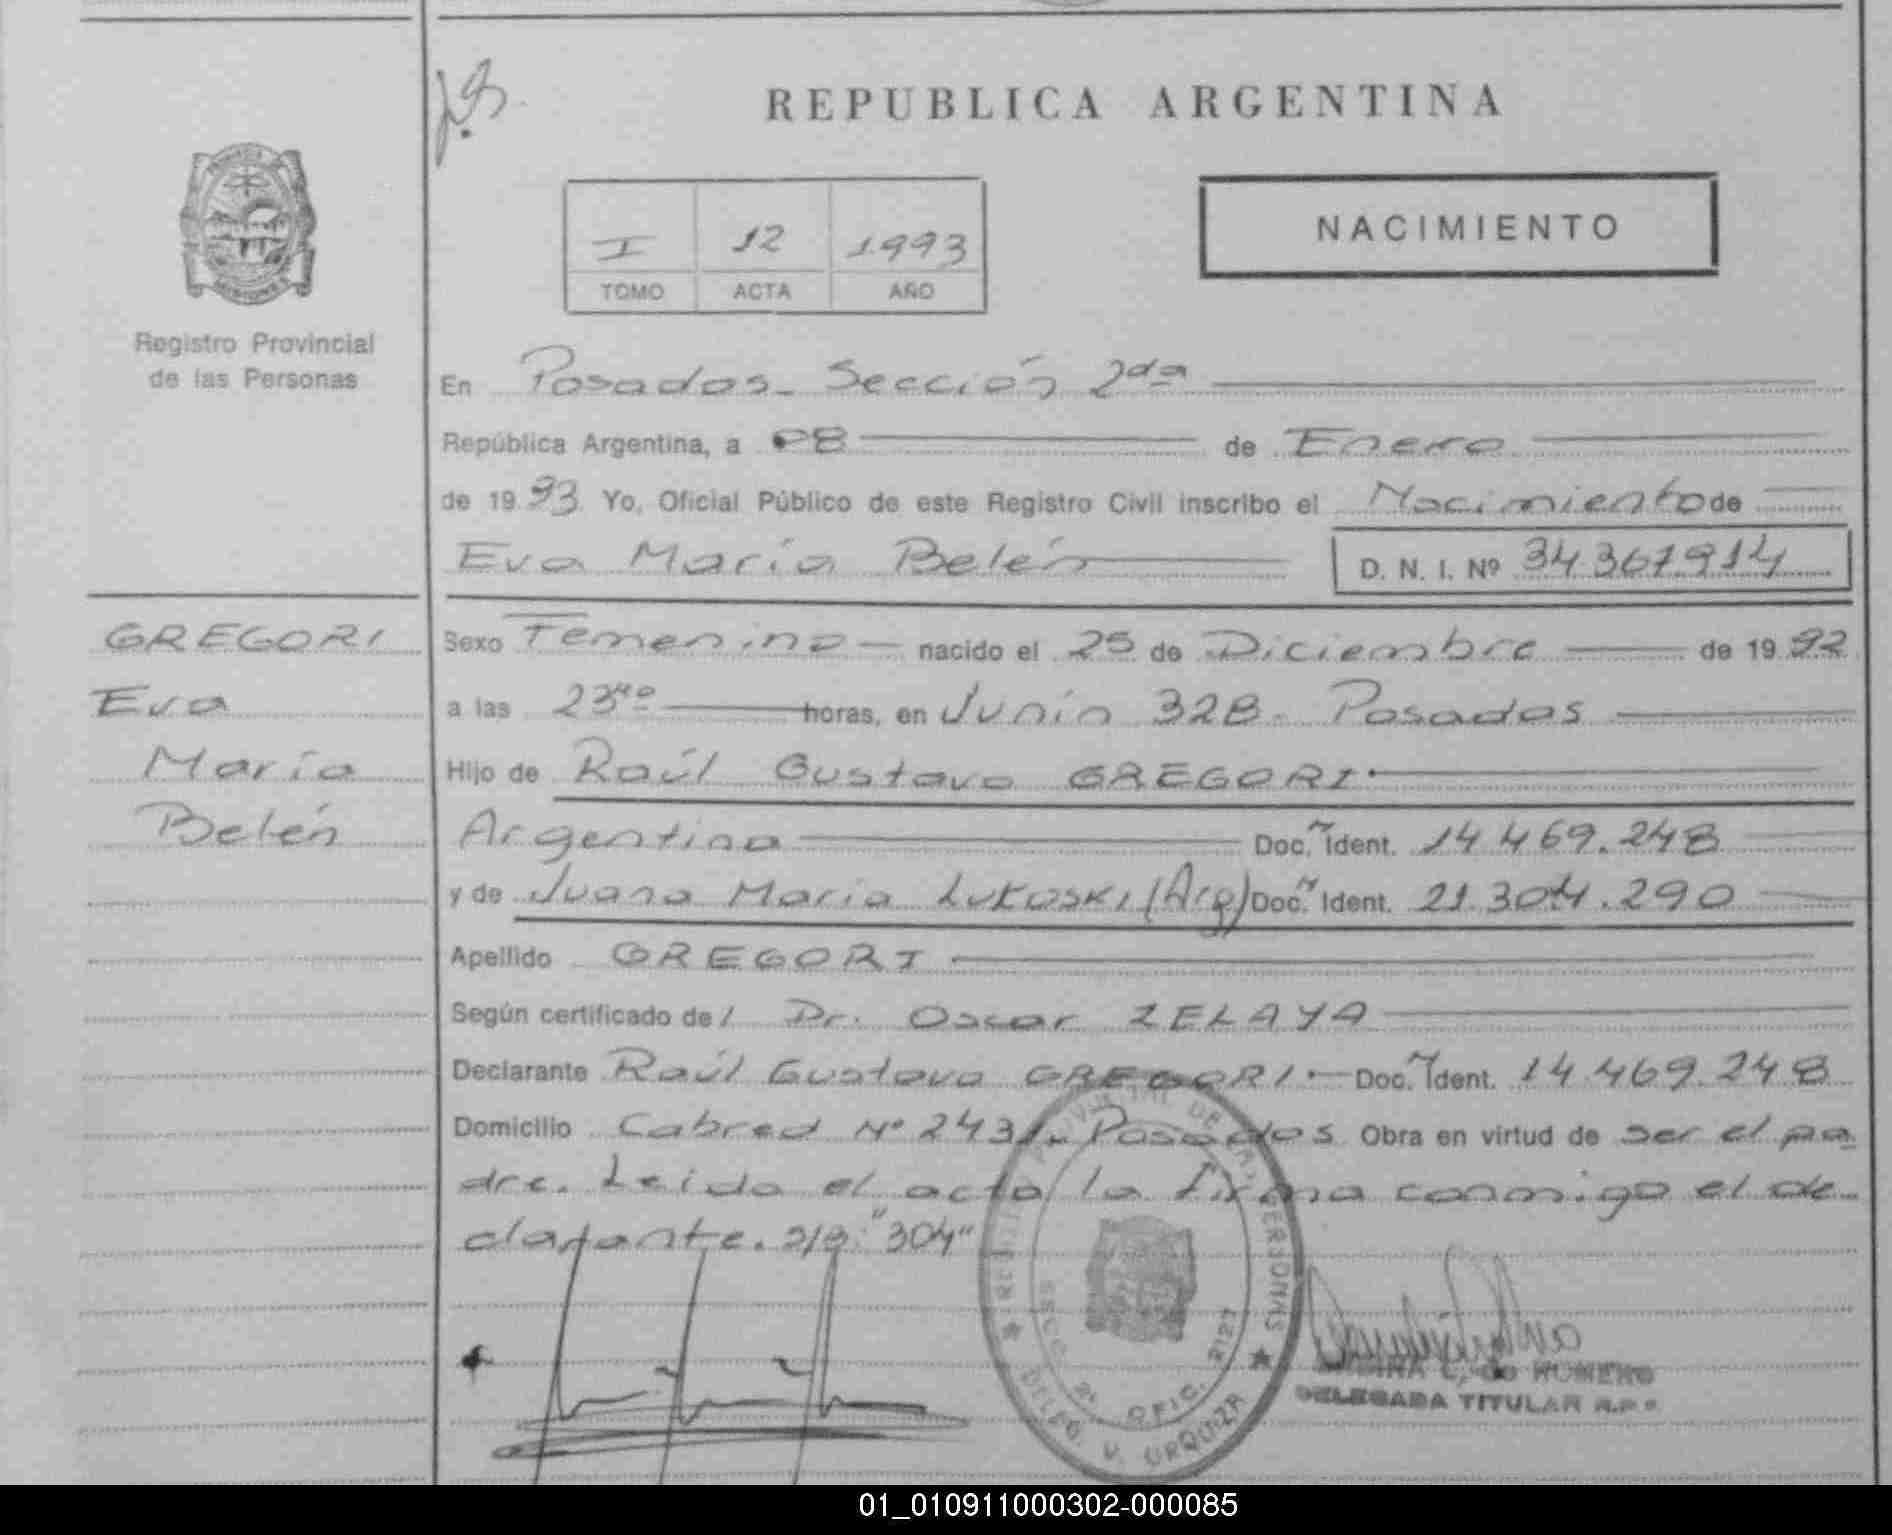 REPUBLICA ARGENTINA
NACIMIENTO
I 12 1993
TOMO ACTA AÑO
Registro Provincial
de las Personas
En Posadas - Sección 2da
República Argentina, a 08 de Enero
de 1993 Yo, Oficial Público de este Registro Civil inscribo el Nacimiento de
Eva María Belén D. N. I. Nº 34367914
GREGORI
Eva
María
Belén
Sexo Femenino nacido el 25 de Diciembre de 1992
a las 23 horas, en Junín 328 - Posadas
Hijo de Raúl Gustavo GREGORI
Argentino Doc. Ident. 14.469.248
y de Juana María Lukoski (Arg) Doc. Ident. 21.304.290
Apellido GREGORI
Según certificado del Dr. Oscar ZELAYA
Declarante Raúl Gustavo GREGORI Doc. Ident. 14.469.248
Domicilio Cabred Nº 2431 - Posadas Obra en virtud de ser el pa-
dre. Leida el acta la firma conmigo el de-
clarante. "304"
REGISTRO PROVINCIAL DE LAS PERSONAS
SECC. 2ª OFIC. 2127
DELEG. V. URQUIZA
DELEGADA TITULAR R.P.P.
01_010911000302-000085